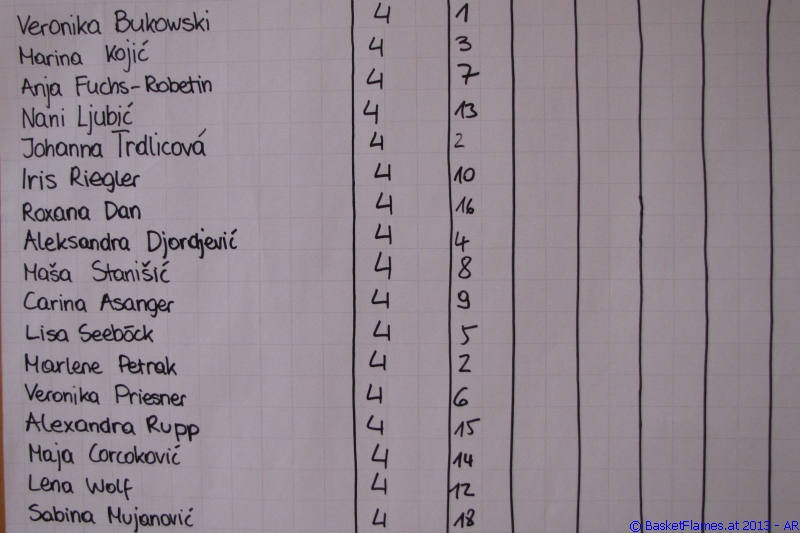 Veronika Bukowski 4 1
Marina Kojić 4 3
Anja Fuchs-Robetin 4 7
Nani Ljubić 4 13
Johanna Trdlicová 4 2
Iris Riegler 4 10
Roxana Dan 4 16
Aleksandra Djordjević 4 4
Maša Stanišić 4 8
Carina Asanger 4 9
Lisa Seeböck 4 5
Marlene Petrak 4 2
Veronika Priesner 4 6
Alexandra Rupp 4 15
Maja Corcoković 4 14
Lena Wolf 4 12
Sabina Mujanović 4 18
© BasketFlames.at 2013 - AR